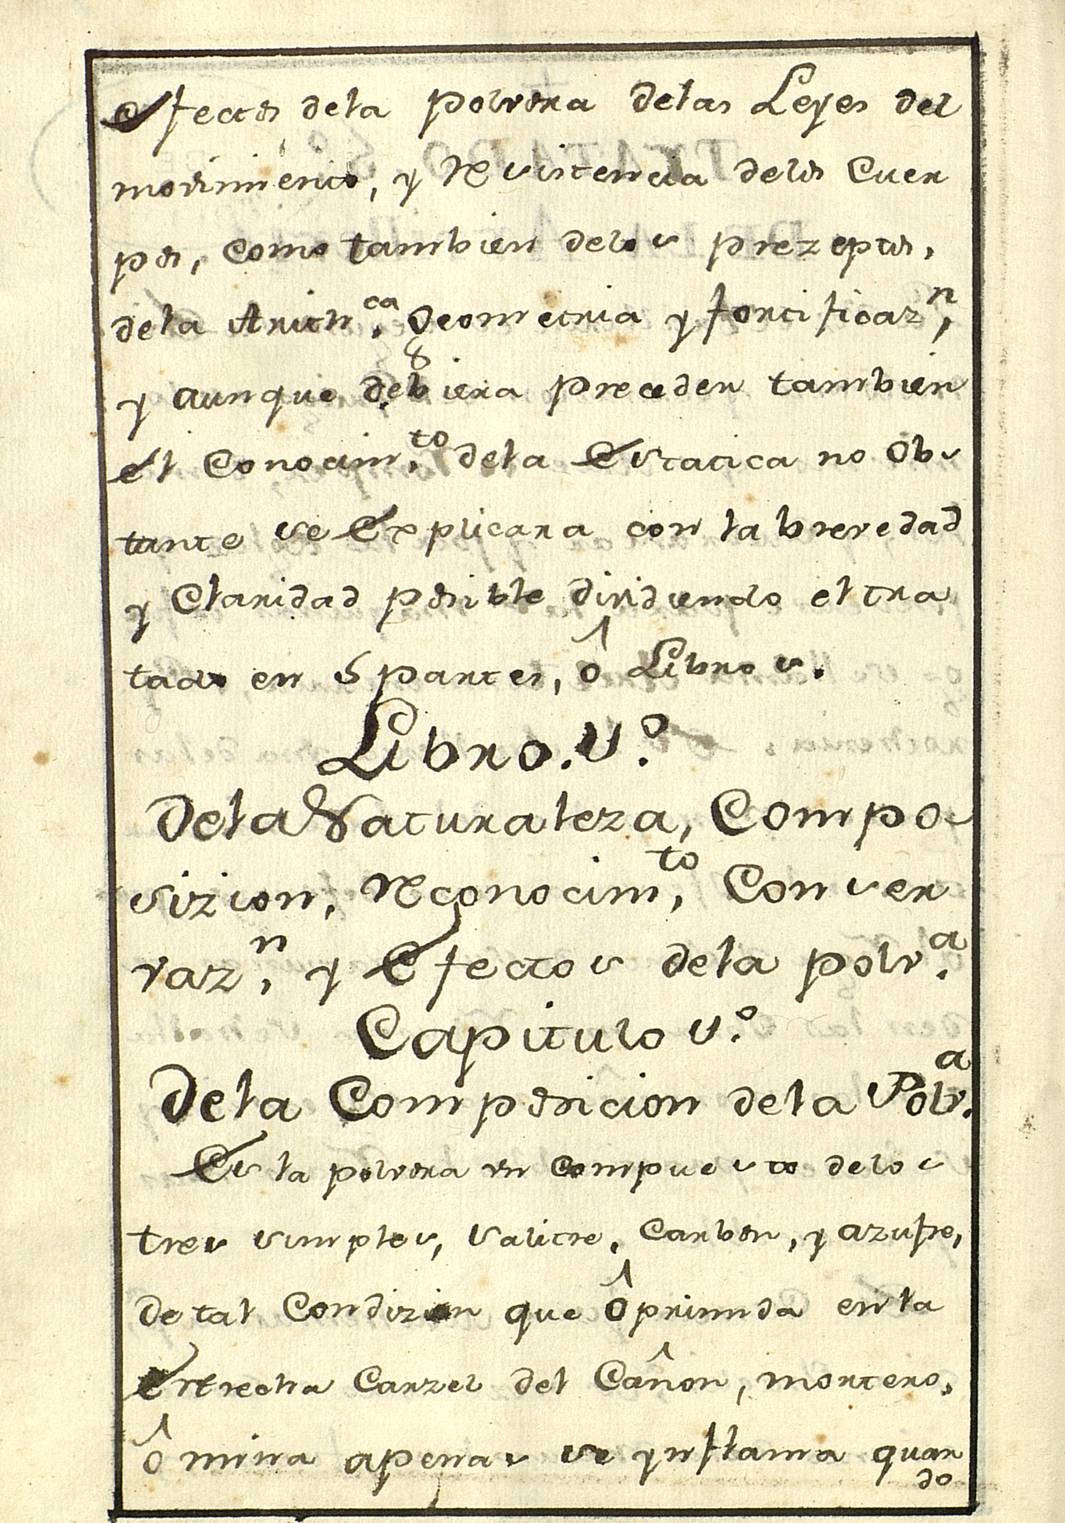 efectos dela polvora delas Leyes del
movimiento, y Resistencia delos Cuer
pos, como tambien delos prezeptos,
dela Arith.ca, Geometria y fortificaz.n,
y aunque debiera preceder tambien
el Conocim.to dela Estatica no Obs
tante se Explicara con la brevedad
y Claridad posible dividiendo el tra
tado en 5 partes, ô Libros.
Libro. 1.º
Dela Naturaleza, Compo-
sizion, Reconocim.to, Conser
vaz.n, y Efectos dela polv.a
Capitulo 1.º
Dela Composicion dela Polv.a
Es la polvora un compuesto delos
tres simples, Salitre, Carbon, y azufre,
de tal Condizion que Ôprimida en la
Estrecha Carzel del Cañon, mortero,
ô mina apenas se ynflama quan
do